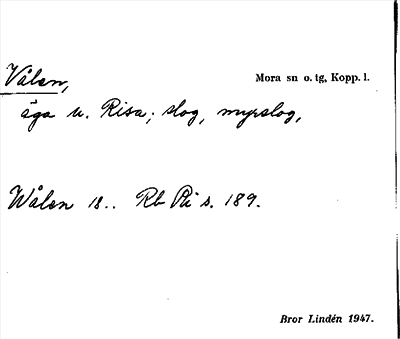 Vålen, Mora sn o. tg, Kopp. l.
äga u. Risa; slog, myrslog,
Wålen 18.. Rb På s. 189.
Bror Lindén 1947.